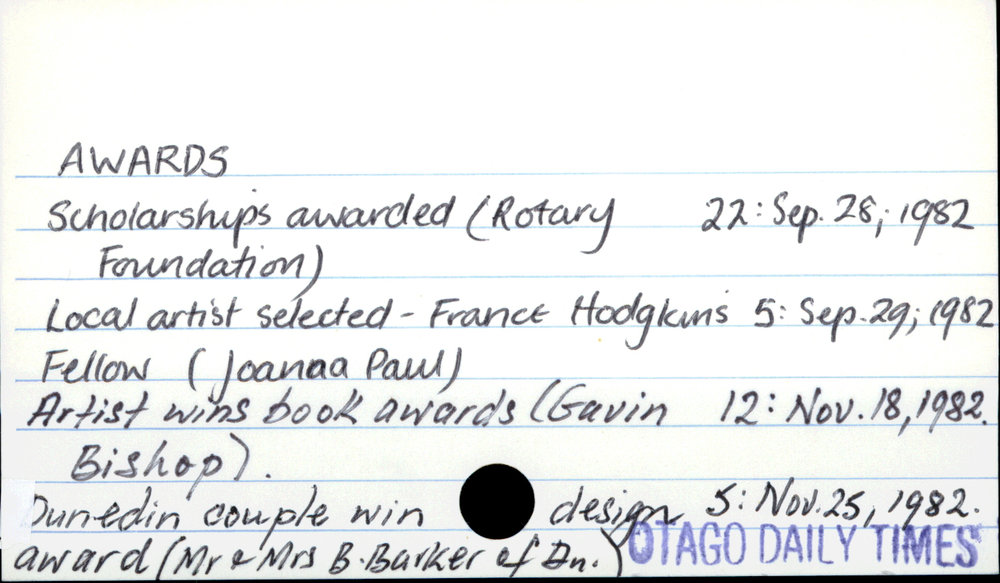 AWARDS
Scholarships awarded (Rotary 22: Sep. 28; 1982
Foundation)
Local artist selected - France Hodgkins 5: Sep. 29; 1982
Fellow (Joanna Paul)
Artist wins book awards (Gavin 12: Nov. 18, 1982.
Bishop).
Dunedin couple win design 5: Nov. 25, 1982.
award (Mr & Mrs B. Barker of Dn.) OTAGO DAILY TIMES